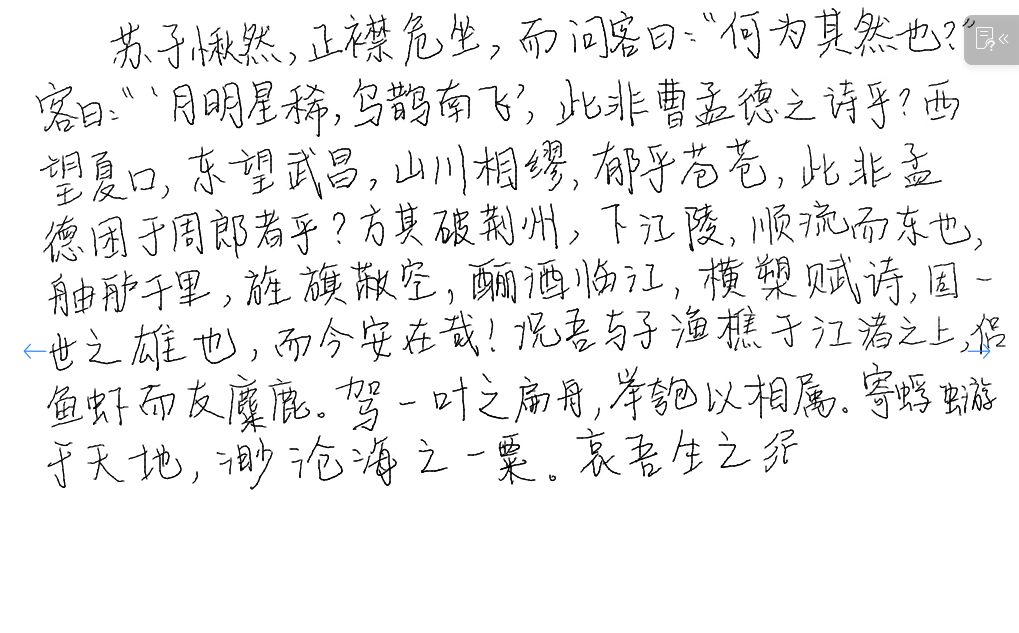 苏子愀然，正襟危坐，而问客曰：“何为其然也？”
客曰：“‘月明星稀，乌鹊南飞’，此非曹孟德之诗乎？西
望夏口，东望武昌，山川相缪，郁乎苍苍，此非孟
德困于周郎者乎？方其破荆州，下江陵，顺流而东也，
舳舻千里，旌旗蔽空，酾酒临江，横槊赋诗，固一
世之雄也，而今安在哉！况吾与子渔樵于江渚之上，侣
鱼虾而友麋鹿。驾一叶之扁舟，举匏以相属。寄蜉蝣
于天地，渺沧海之一粟。哀吾生之